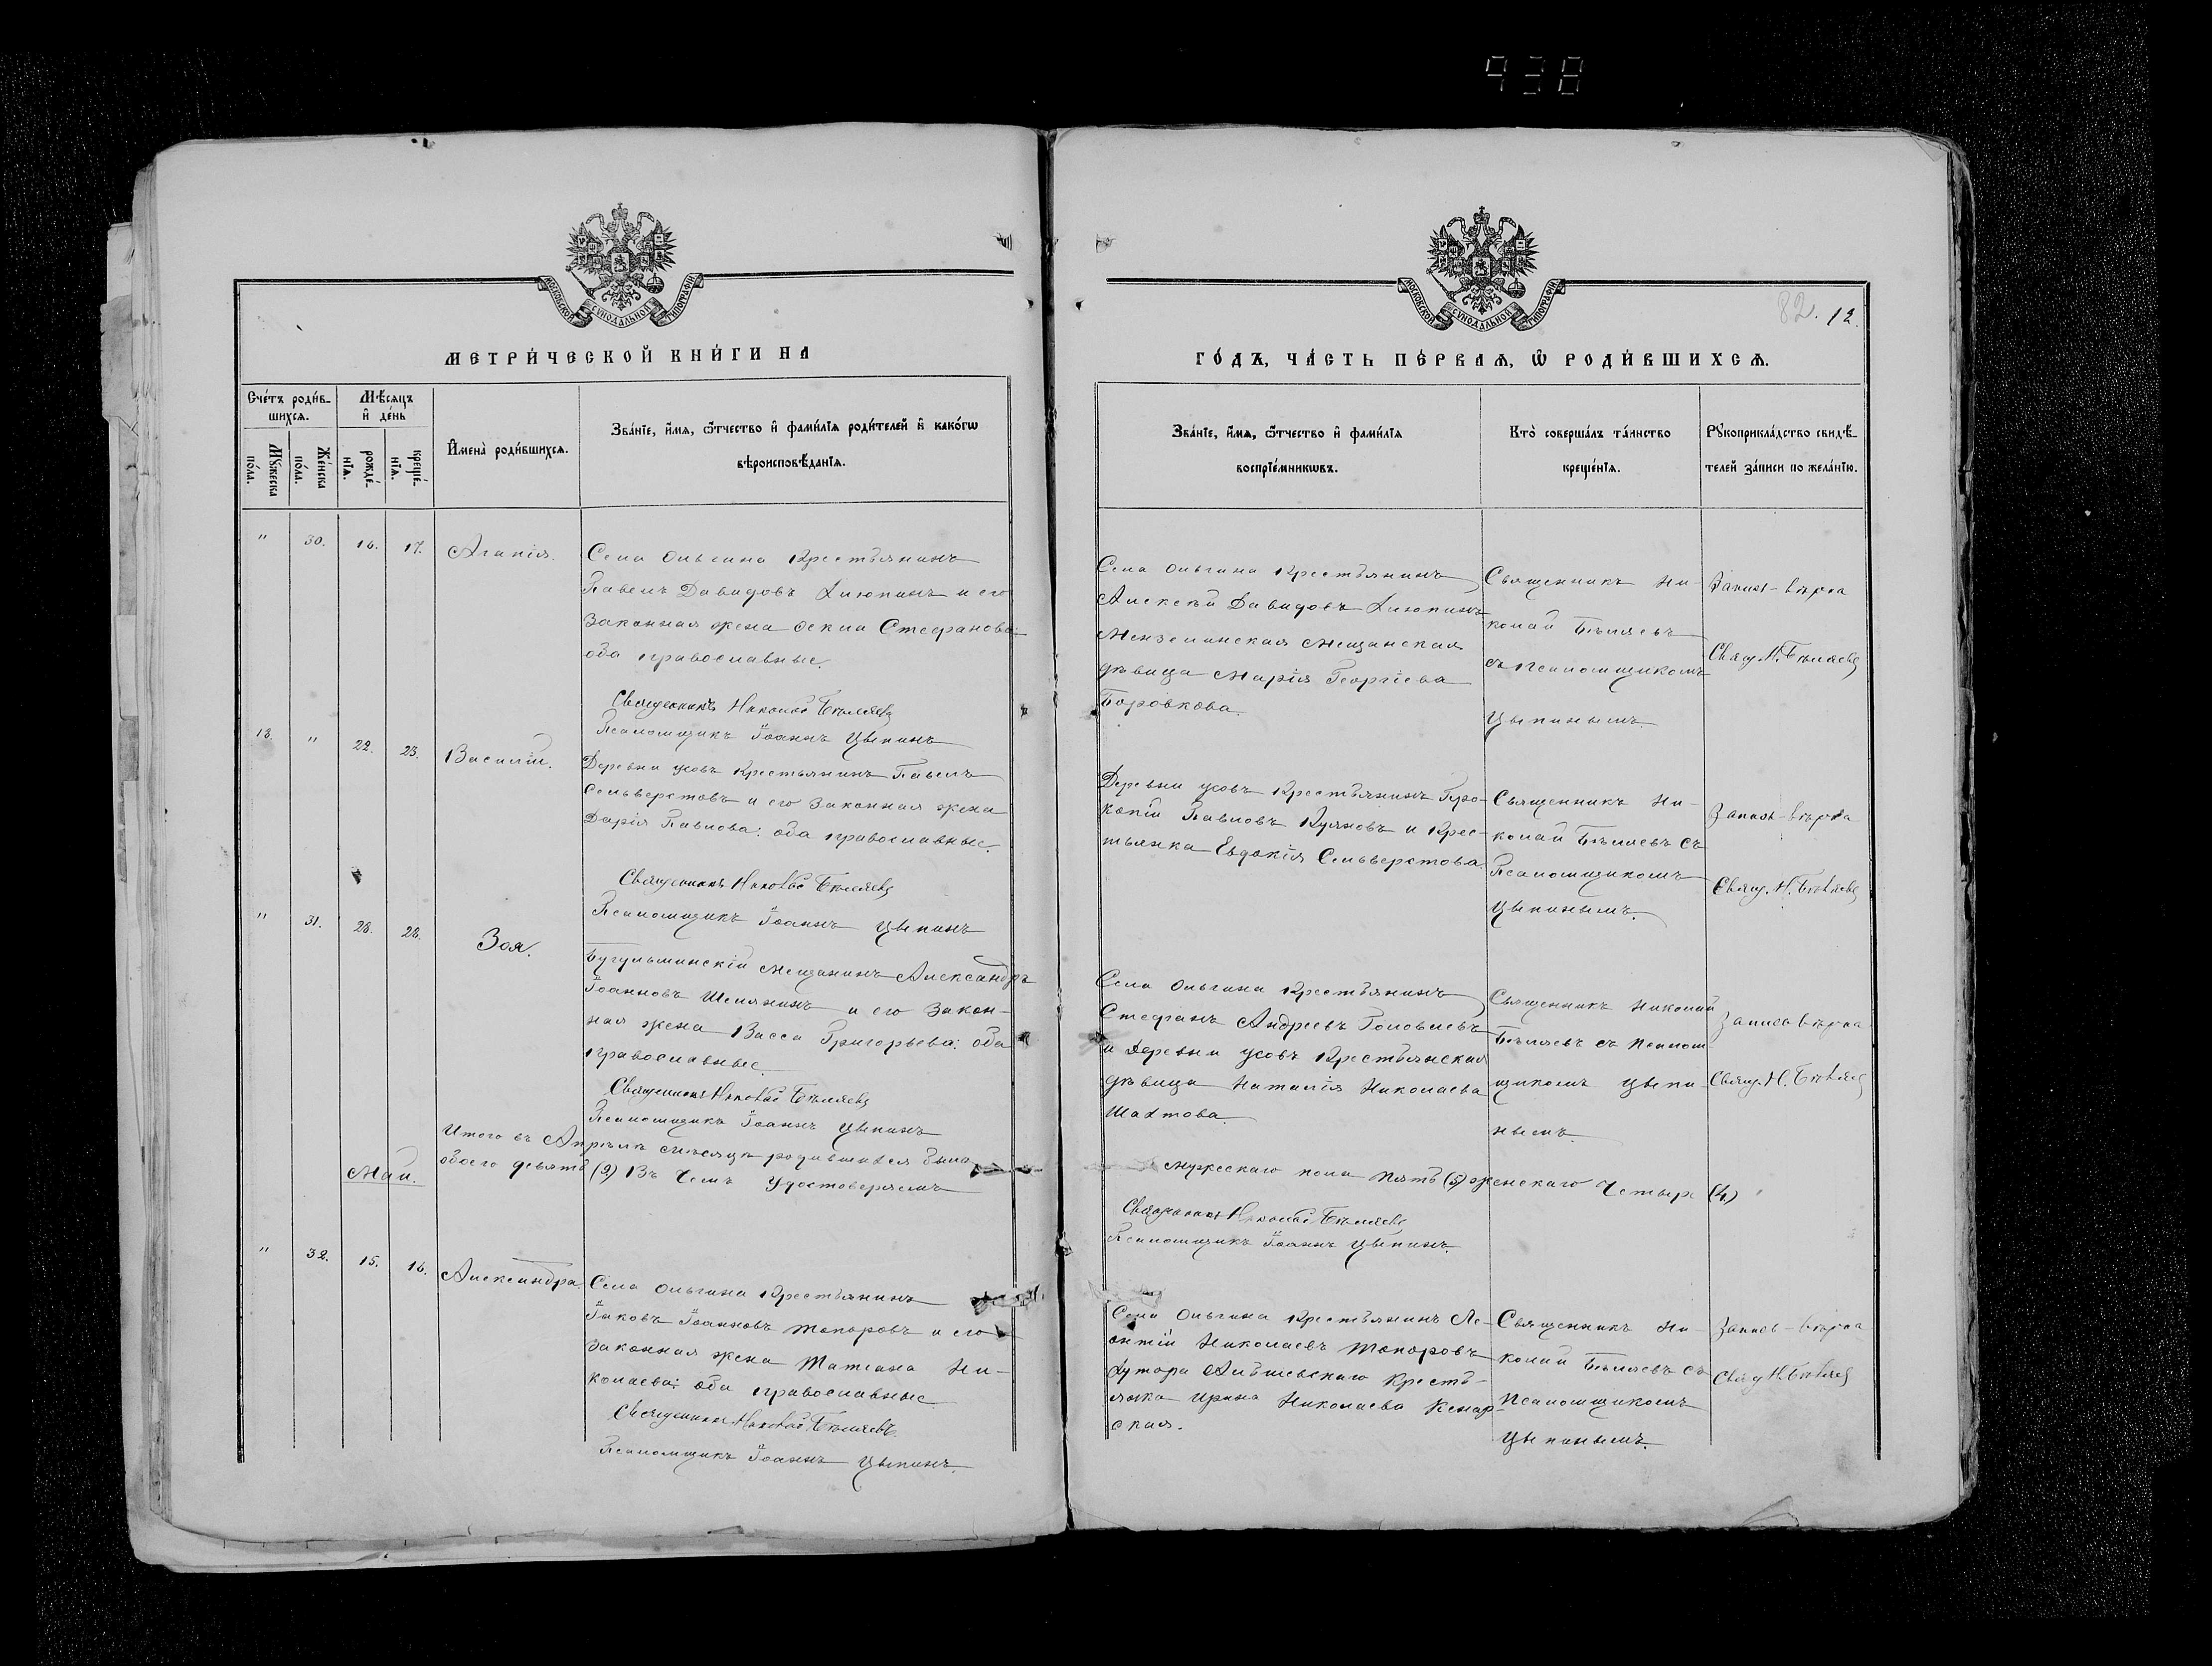 938
МОСКОВСКОЙ СУНОДАЛЬНОЙ ТИПОГРАФІИ
МЕТРИ́ЧЕСКОЙ КНИ́ГИ НА
Сче́тъ роди́в-
шихсѧ.
Мꙋ́жеска по́ла.
Же́нска по́ла.
Мѣ́сяцъ и҆ де́нь
рожде́-
нїѧ.
креще́-
нїѧ.
И҆мена̀ роди́вшихсѧ.
Зва́нїе, и҆́мѧ, ѻ҆́тчество и҆ фами́лїѧ роди́телей и҆ како́гѡ
вѣроисповѣ́данїѧ.
" 30. 16. 17. Агапія.
Села Ольгина Крестьянинъ
Павелъ Давидовъ Хлюпинъ и его
законная жена Фекла Стефанова:
оба православные.
Священникъ Николай Бѣляевъ
Псаломщикъ Іоаннъ Цыпинъ
13. " 22. 23. Василій.
Деревни Усовъ Крестьянинъ Павелъ
Сельверстовъ и его законная жена
Дарія Павлова: оба православные.
Священникъ Николай Бѣляевъ
Псаломщикъ Іоаннъ Цыпинъ
" 31. 28. 28. Зоя.
Бугульминскій мещанинъ Александръ
Іоанновъ Шемянинъ и его закон-
ная жена Васса Григорьева: оба
православные.
Священникъ Николай Бѣляевъ
Псаломщикъ Іоаннъ Цыпинъ
Итого въ Апрѣлѣ мѣсяцѣ родившихся было
обоего девять (9) Въ чемъ удостоверяемъ
Май.
" 32. 15. 16. Александра.
Села Ольгина Крестьянинъ
Іаковъ Іоанновъ Топоровъ и его
законная жена Татіана Ни-
колаева: оба православные
Священникъ Николай Бѣляевъ.
Псаломщикъ Іоаннъ Цыпинъ.
МОСКОВСКОЙ СУНОДАЛЬНОЙ ТИПОГРАФІИ
82. 12.
ГО́ДЪ, ЧА́СТЬ ПЕ́РВАѦ, Ѡ҆ РОДИ́ВШИХСѦ.
Зва́нїе, и҆́мѧ, ѻ҆́тчество и҆ фами́лїѧ
воспрїе́мникѡвъ.
Кто̀ соверша́лъ та́инство
креще́нїѧ.
Рꙋкоприкла́дство свидѣ́-
телей за́писи по жела́нїю.
Села Ольгина Крестьянинъ
Алексѣй Давидовъ Хлюпинъ
Мензелинская мещанская
дѣвица Марія Георгіева
Боровкова.
Священникъ Ни-
колай Бѣляевъ
съ Псаломщикомъ
Цыпинымъ.
Запись вѣрна
Свящ. Н. Бѣляевъ
Деревни Усовъ Крестьянинъ Про-
копій Павловъ и Крес-
тьянка Евдокія Сельверстова.
Священникъ Ни-
колай Бѣляевъ съ
Псаломщикомъ
Цыпинымъ.
Запись вѣрна
Свящ. Н. Бѣляевъ
Села Ольгина Крестьянинъ
Стефанъ Андреевъ Головлевъ
и Деревни Усовъ Крестьянская
дѣвица Наталія Николаева
Шахтова.
Священникъ Николай
Бѣляевъ съ Псалом-
щикомъ Цыпи-
нымъ.
Запись вѣрна
Свящ. Н. Бѣляевъ
мужескаго пола пять (5) женскаго четыре (4)
Священникъ Николай Бѣляевъ
Псаломщикъ Іоаннъ Цыпинъ.
Села Ольгина Крестьянинъ Ле-
онтій Николаевъ Топоровъ
Хутора Крестья-
янка Ирина Николаева
ская.
Священникъ Ни-
колай Бѣляевъ съ
Псаломщикомъ
Цыпинымъ.
Запись вѣрна
Свящ Н. Бѣляевъ